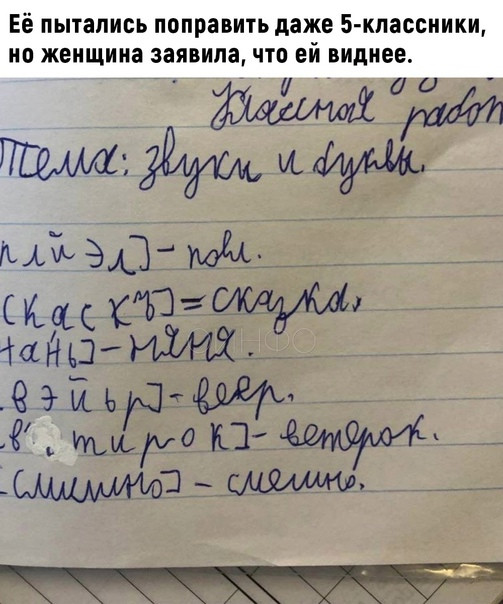 Её пытались поправить даже 5-классники,
но женщина заявила, что ей виднее.
Классная работ
Тема: звуки и буквы.
плйэл] - повл.
[скаскъ] = сказка.
няńь] - няня.
вэйьр] - веер.
в' тирок] - ветерок.
[смишно] - смешно.